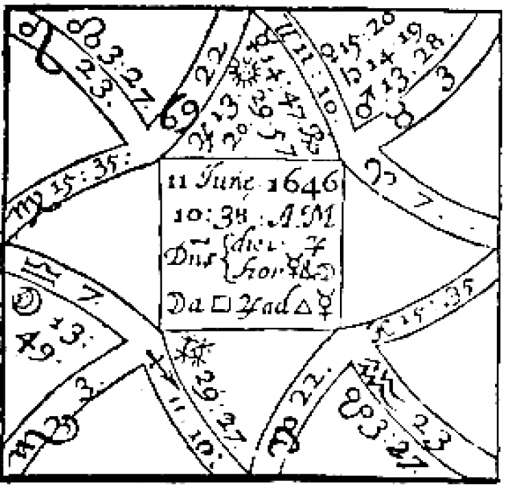 ♌ 23.
☊ 3:27.
♋ 22
☿ 14:47 ℞
☉ 29 57
♃ 13:20
♊ 11:10
♀ 15:20
♄ 14 19
♂ 13.28.
♉ 3
♈ 7.
♍ 15:35:
11 June 1646
10:38 : A M
Dñs { diei ♃
hor ☿ & ☽
Da □ ♃ ad △ ☿
♎ 7
☽ 13:
49.
♏ 3.
♐ 11:10:
29:27
♑ 22.
☋ 3:27.
♒ 23
♓ 15:35